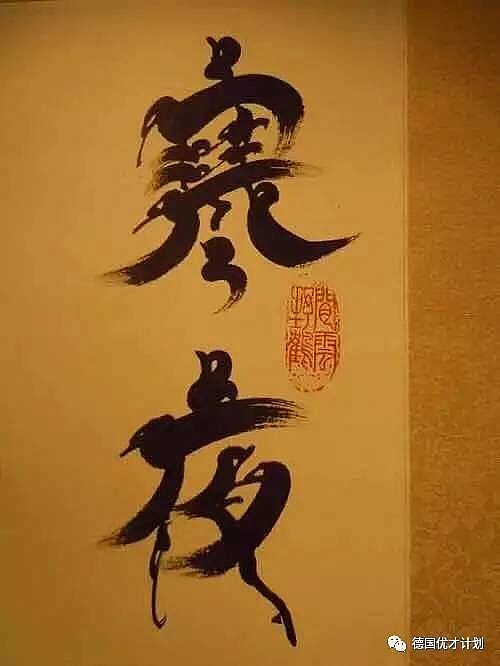 寒夜
閒雲
野鶴
德国优才计划